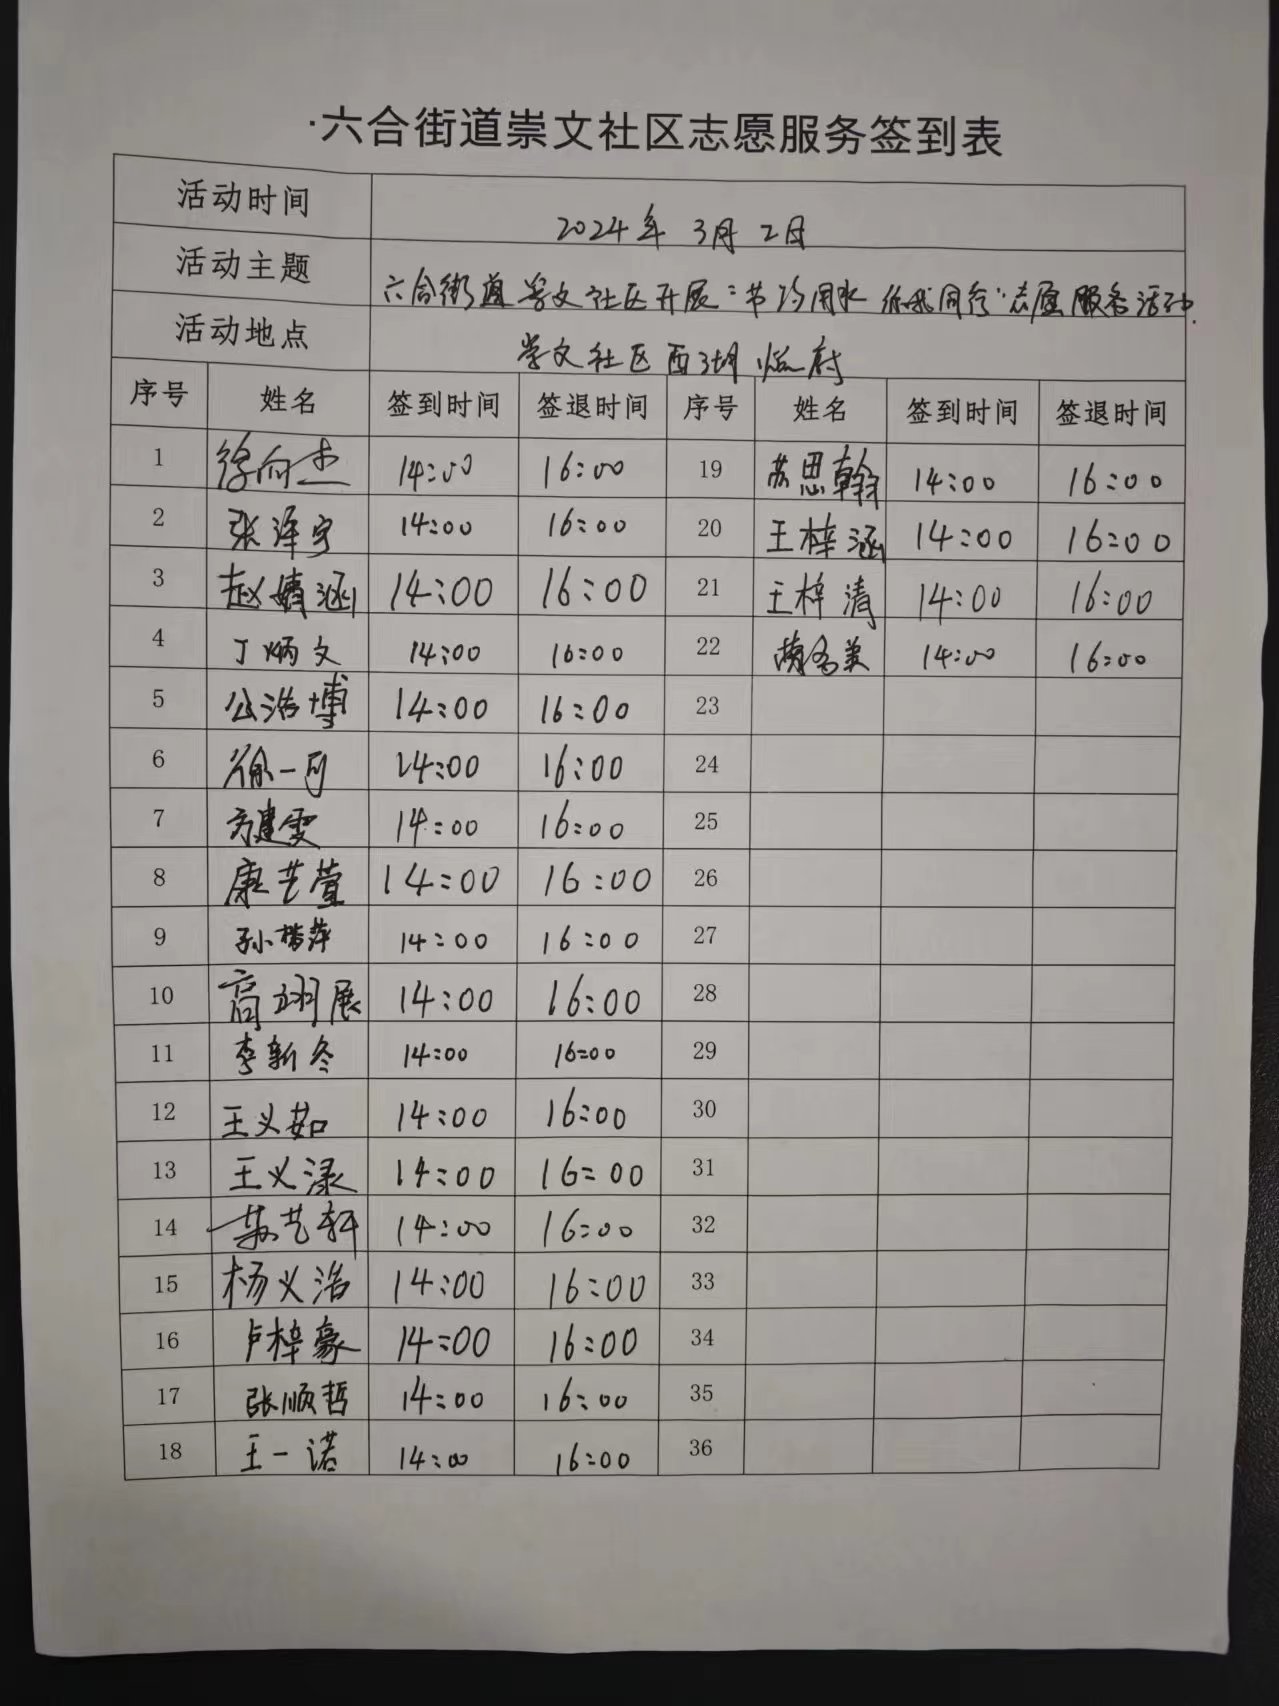 ·六合街道崇文社区志愿服务签到表
活动时间 2024年 3月 2日
活动主题 六合街道崇文社区开展"节约用水 你我同行"志愿服务活动.
活动地点 崇文社区西湖临府
序号 姓名 签到时间 签退时间 序号 姓名 签到时间 签退时间
1 徐向杰 14:00 16:00 19 苏思翰 14:00 16:00
2 张泽宇 14:00 16:00 20 王梓涵 14:00 16:00
3 赵婧涵 14:00 16:00 21 王梓清 14:00 16:00
4 丁炳文 14:00 16:00 22 14:00 16:00
5 公浩博 14:00 16:00 23
6 徐一可 14:00 16:00 24
7 14:00 16:00 25
8 康艺萱 14:00 16:00 26
9 孙楷萍 14:00 16:00 27
10 高翊展 14:00 16:00 28
11 李新冬 14:00 16:00 29
12 王义茹 14:00 16:00 30
13 王义渌 14:00 16:00 31
14 苏艺轩 14:00 16:00 32
15 杨义浩 14:00 16:00 33
16 卢梓豪 14:00 16:00 34
17 张顺哲 14:00 16:00 35
18 王一诺 14:00 16:00 36